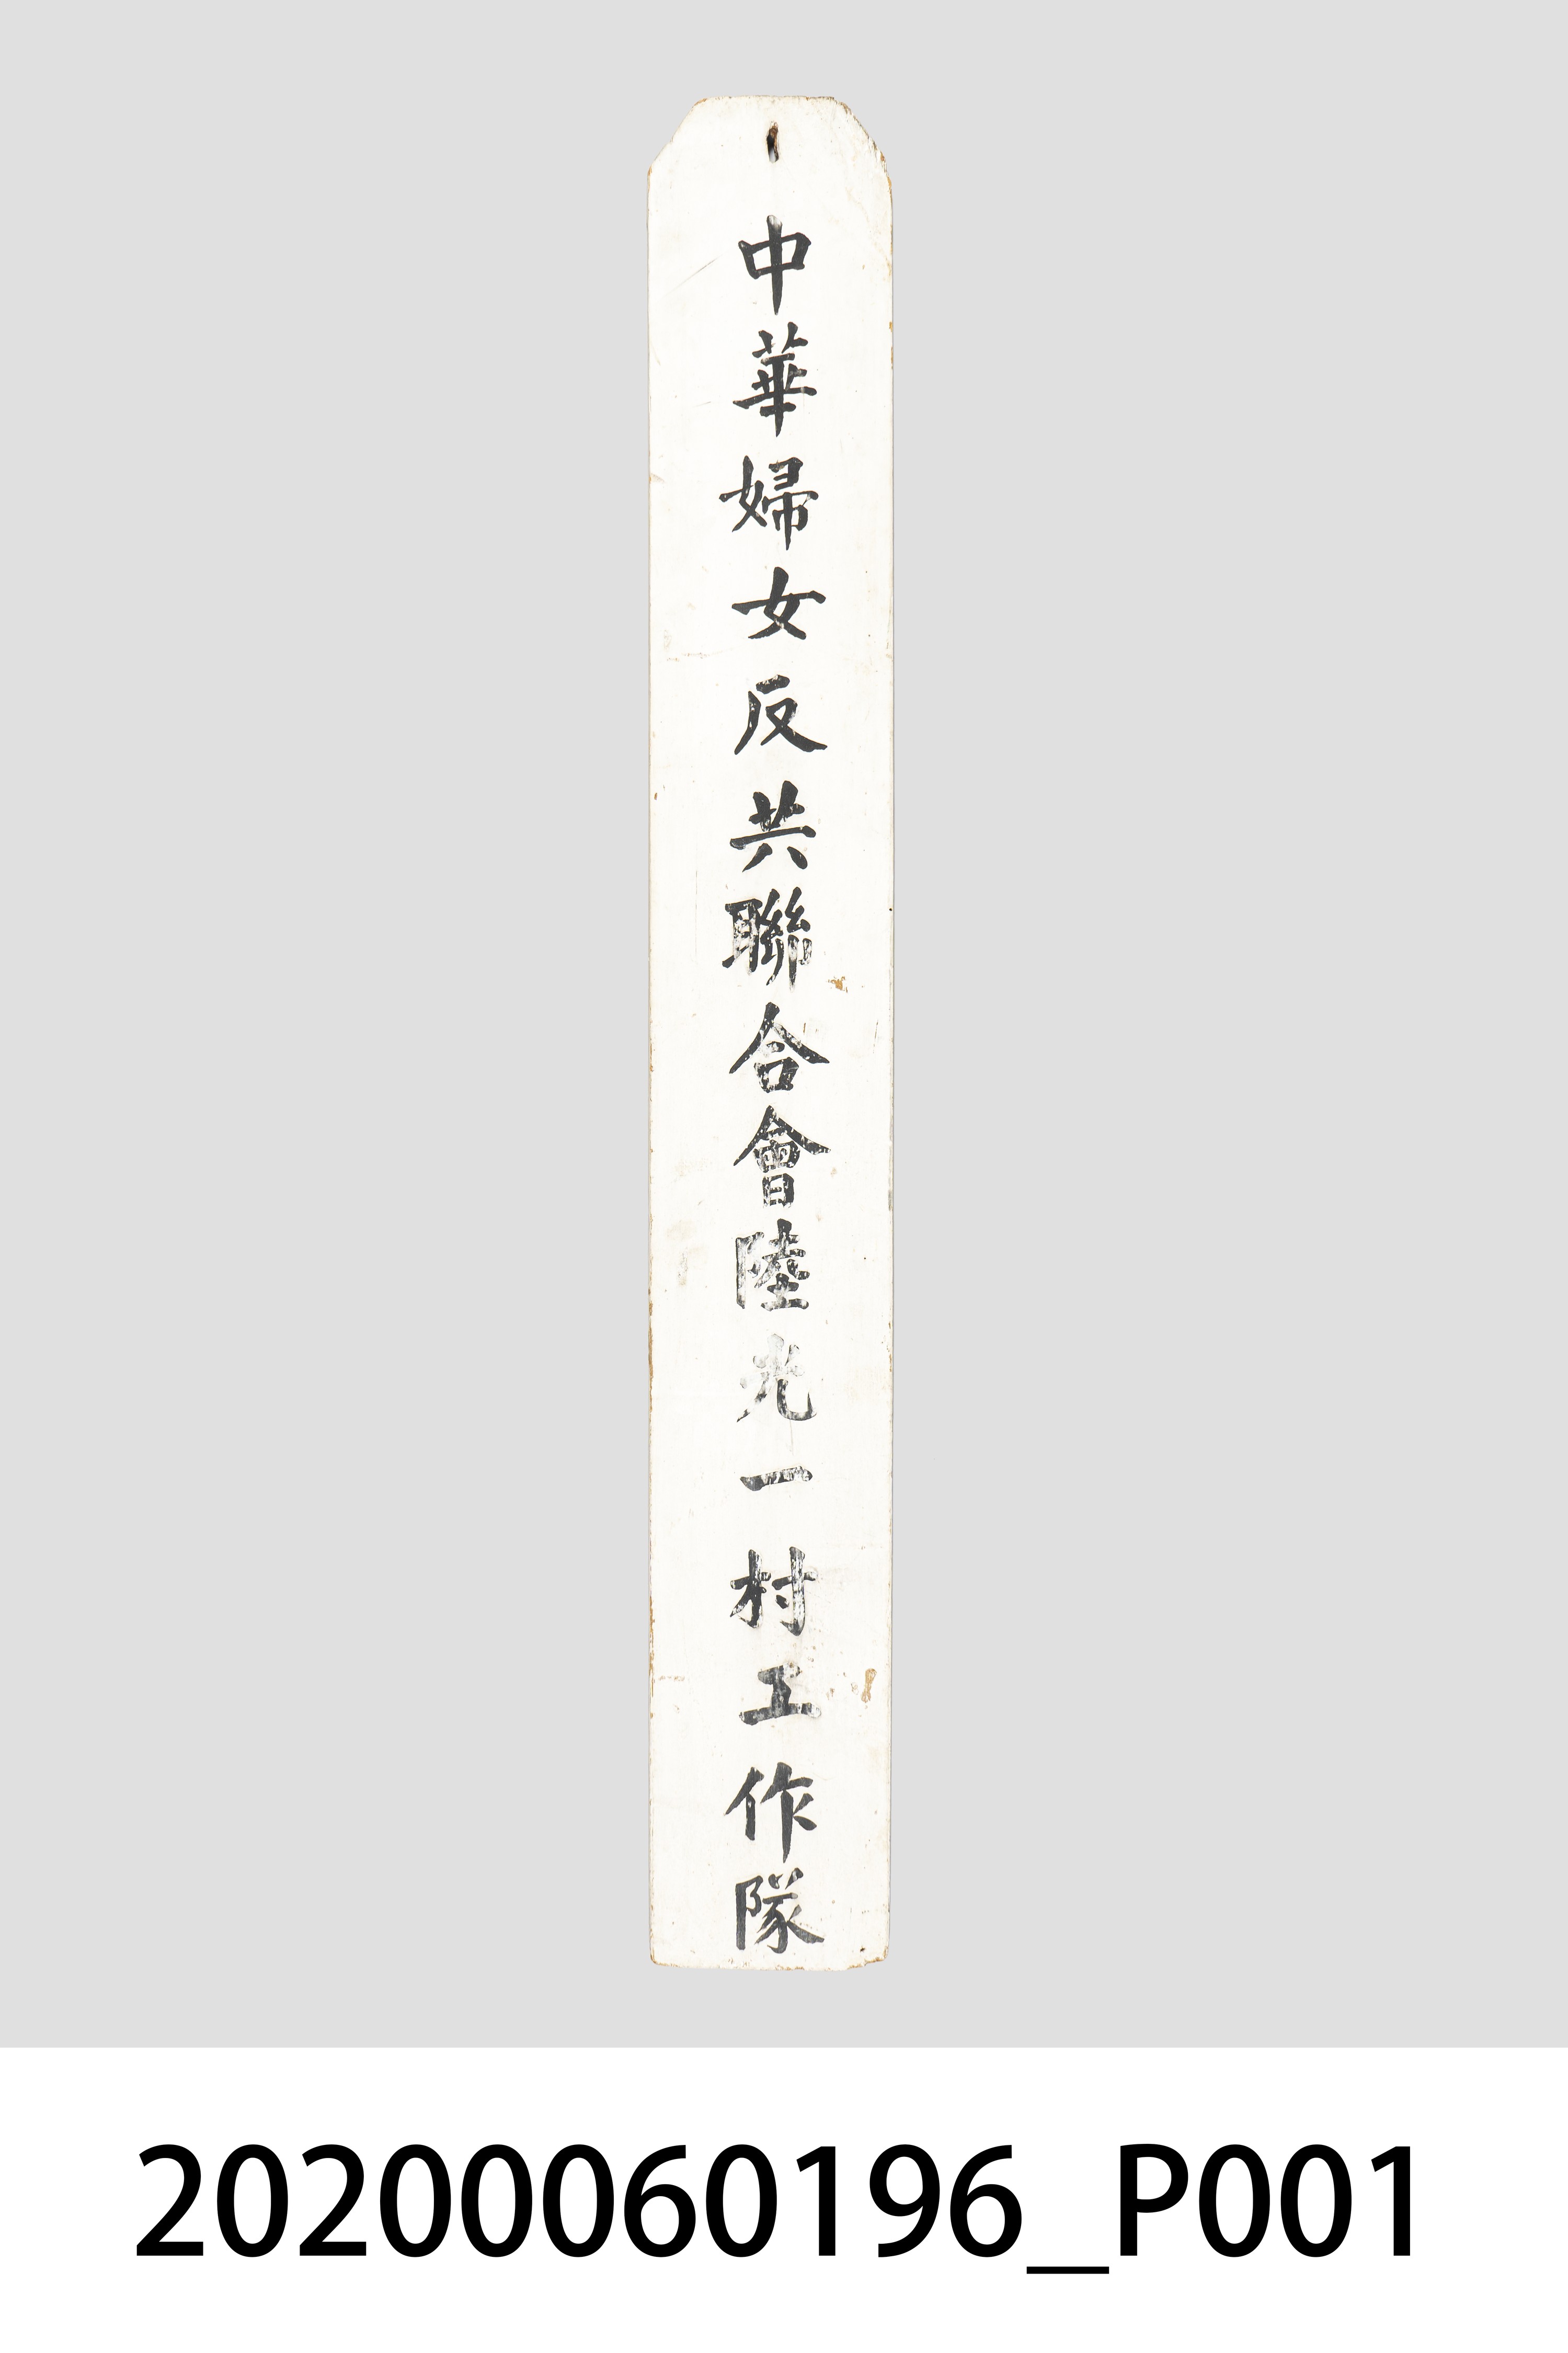 中華婦女反共聯合會陸光一村工作隊
20200060196_P001